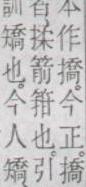 本作撟。今正。撟
者揉箭箝也。引
訓矯也。今人矯